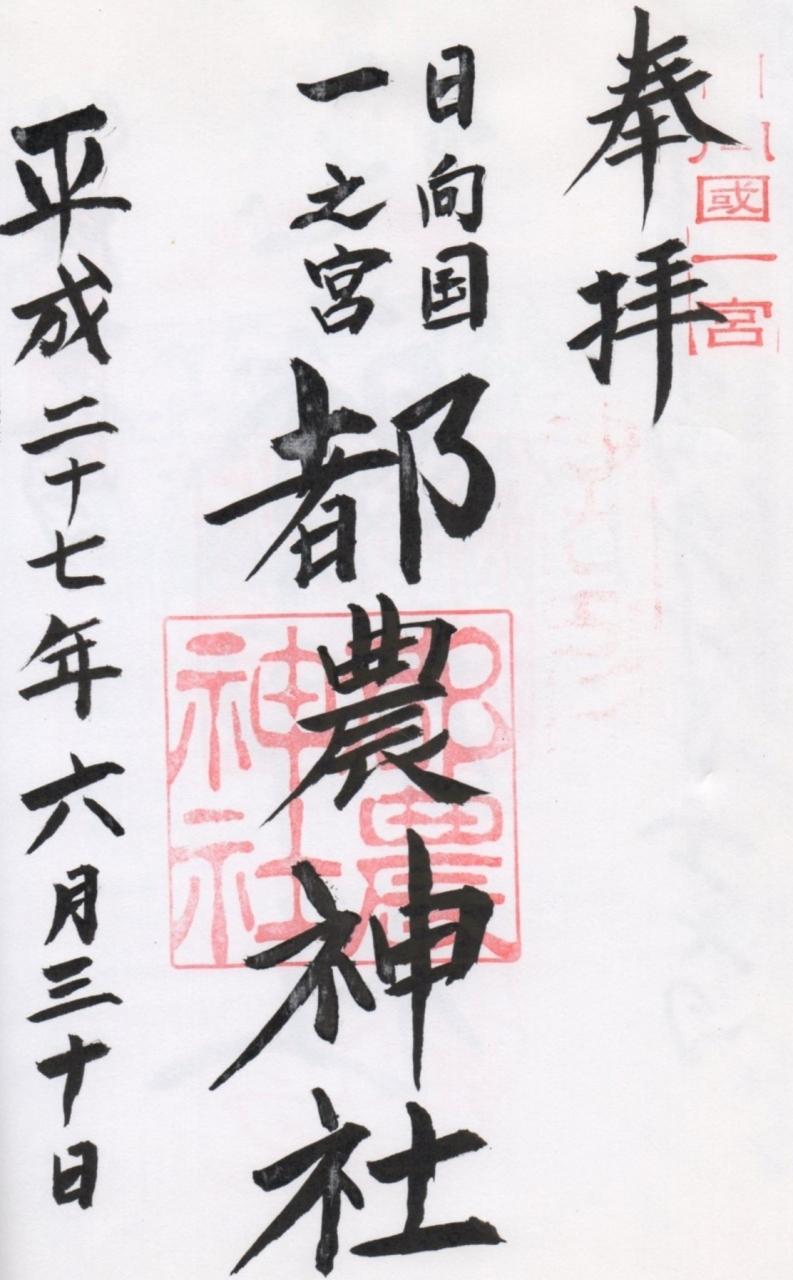 奉拝
國一宮
日向国
一之宮
都農神社
都農
神社
平成二十七年六月三十日